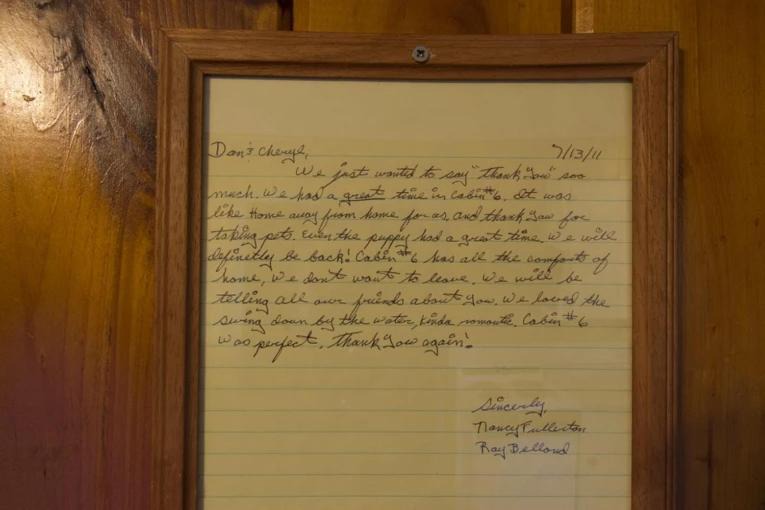 Don & Cheryl, 7/13/11
We just wanted to say "Thank You" soo
much. We had a great time in Cabin #6. It was
like Home away from home for us, and thank you for
taking pets. Even the puppy had a great time. We will
definetly be back! Cabin #6 has all the comforts of
home, We don't want to leave. We will be
telling all our friends about you. We loved the
swing down by the water, kinda romantic. Cabin #6
was perfect. Thank you again!
Sincerly,
Nancy Fullerton
Ray